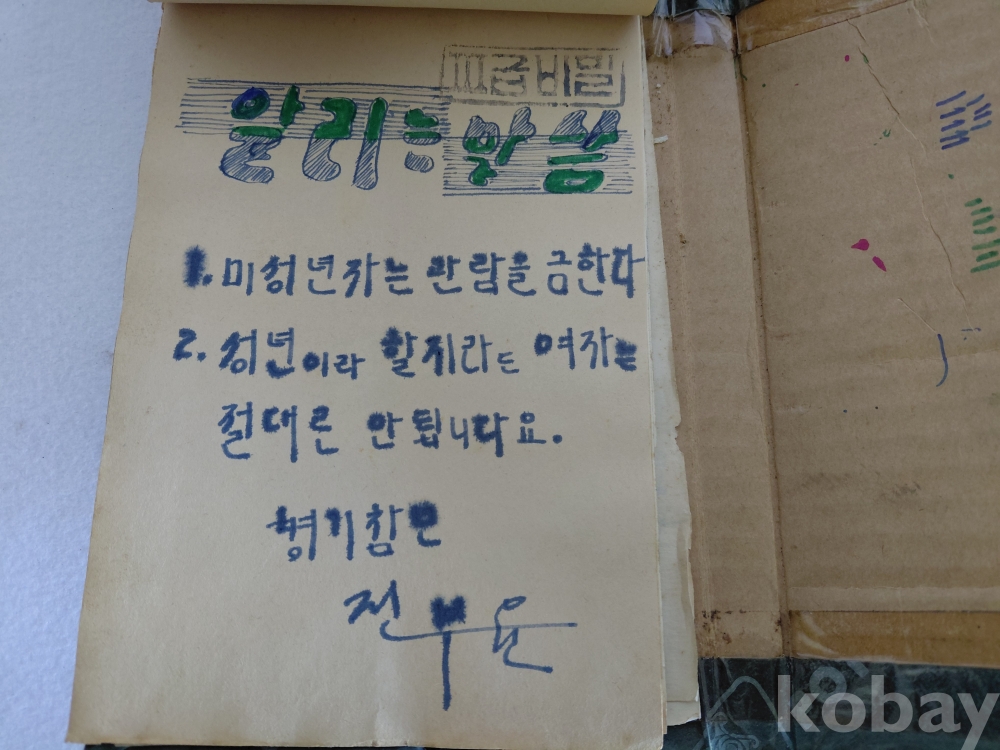 III급비밀
알리는 말씀
1. 미성년자는 관람을 금한다
2. 성년이라 할지라도 여자는
절대론 안됩니다요.
전부윤
kobay